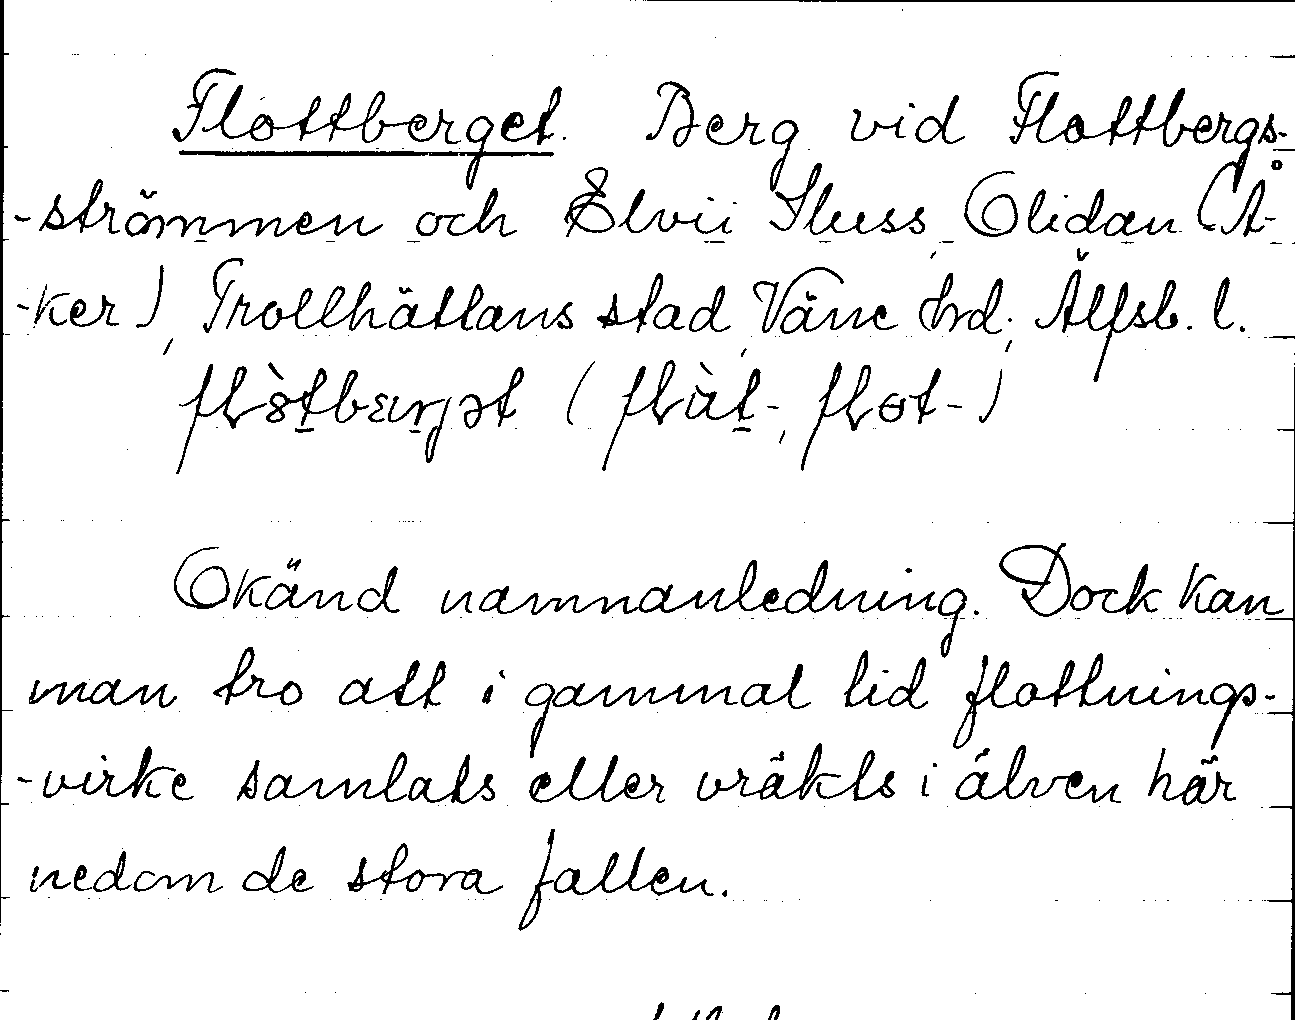 Flottberget. Berg vid Flottbergs-
-strömmen och Elvii Sluss, Olidan (Å-
-ker), Trollhättans stad, Väne hd; Älfsb. l.
flòtbærjət (flàt-, flɵt-)
Okänd namnanledning. Dock kan
man tro att i gammal tid flottnings-
-virke samlats eller vräkts i älven här
nedom de stora fallen.